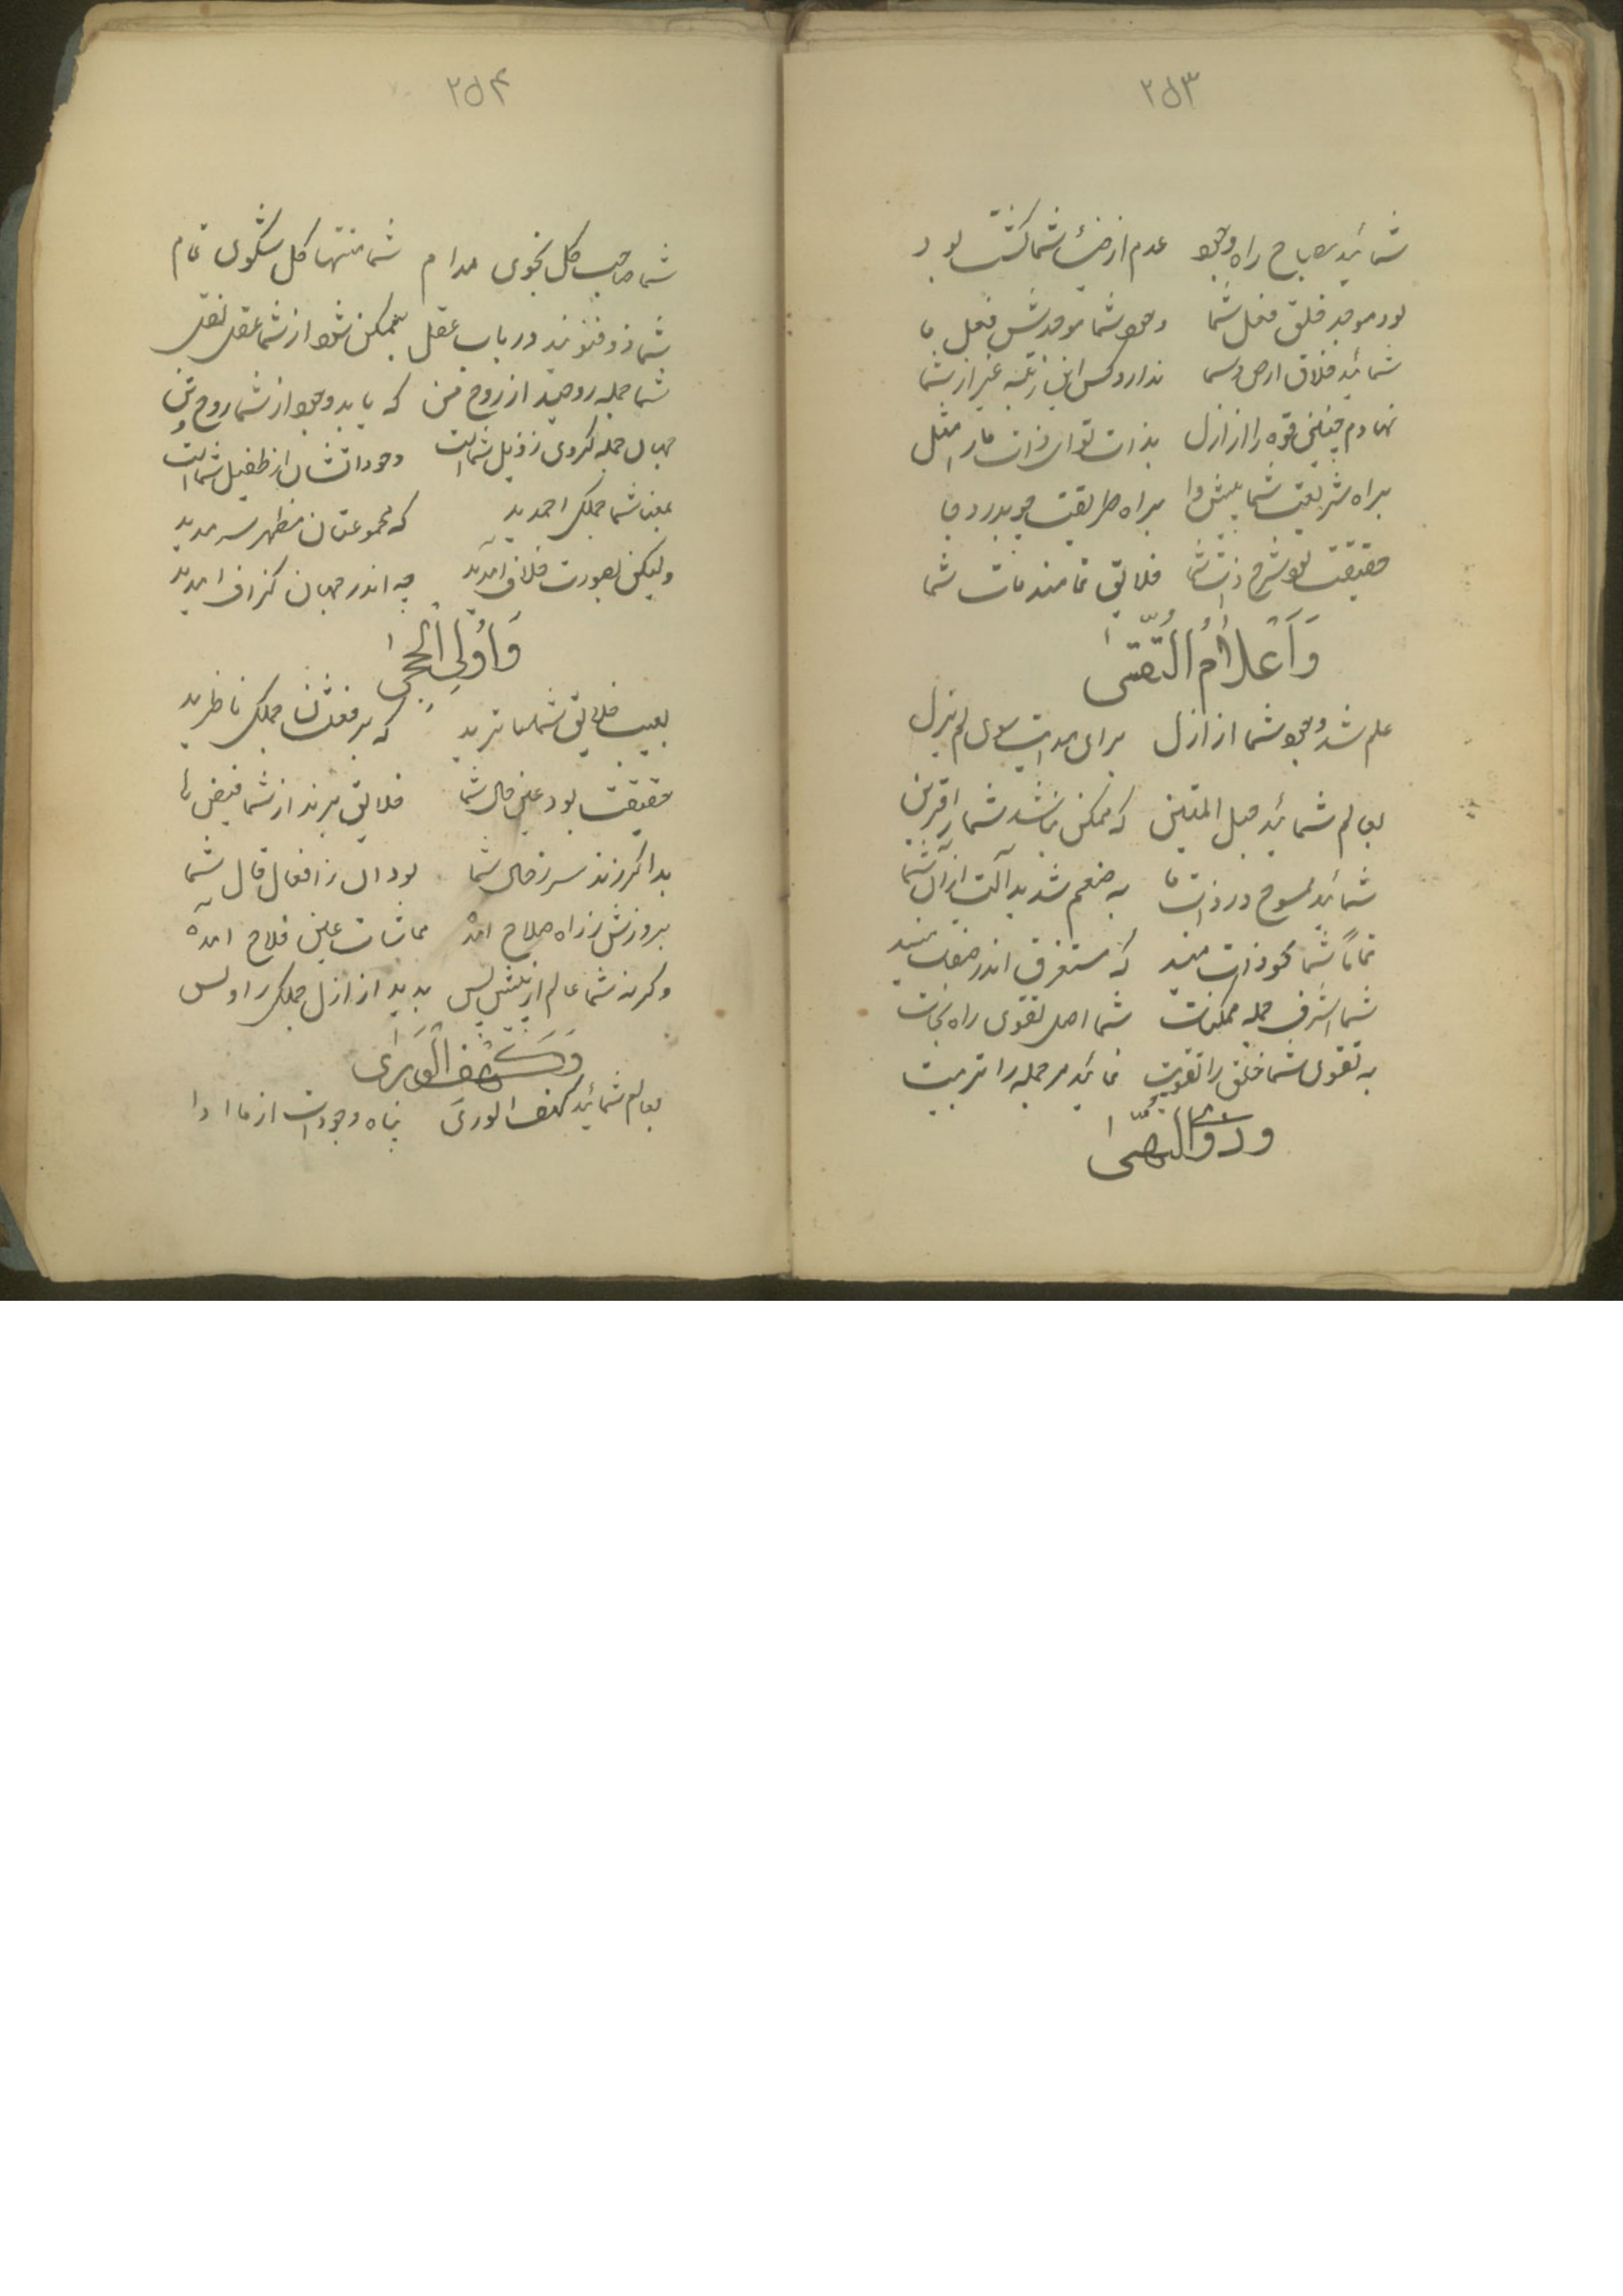 ٢۵٣
شمائید مصباح راه وجود عدم از ضیاء شما گشت بود
بود موجد خلق فعل شما وجود شما موجدش فعل ما
شمائید خلاق ارض و سما ندارد کس این رتبه غیر از شما
نهادم چنین قوه را از ازل بذات
براه شریعت شما پیشوا براه طریقت
حقیقت بود شرح ذات شما خلایق تمامند مات شما
وَاَعْلامُ التُّقىٰ
علم شد وجود شما از ازل برای هدایت سوی لم یزل
بعالم شمائید حبل المتین که ممکن نباشد شما را قرین
شمائید در ذات ما
تماماً شما محو ذات منید که مستغرق اندر صفات منید
شما اشرف جمله ممکنات شما اصل تقوی راه نجات
به تقوی شما خلق را تقویت نمائید مر جمله را تربیت
وذوی النُّهىٰ
٢۵۴
شما صاحب کل نجوی مدام شما منتهای کل شکوی تمام
شما ذو فنونید در باب عقل بممکن شود از شما عقل نقل
شما جمله روحید از روح من که یابد وجود از شما روح و تن
جهان جمله گردی ز ذیل شماست وجوداتشان از طفیل شماست
بمعنی شما جملگی احمدید که مجموعتان مظهر سرمدید
ولیکن بصورت خلاف آمدید چه اندر جهان گزاف آمدید
وَاُولِی الْحِجىٰ
بعیب خلایق شما ساترید که بر فعلشان جملگی ناظرید
حقیقت بود عین حال شما خلایق برند از شما فیض‌ها
بدا گر زند سر ز حال شما بود آن ز افعال قال شما
بروزش ز راه صلاح آمده مماشات عین فلاح آمده
وگرنه شما عالم از پیش و پس بدید از ازل جملگی را و بس
وَكَهْفِ الْوَرىٰ
بعالم شمائید کهف الوری پناه وجودات از ما